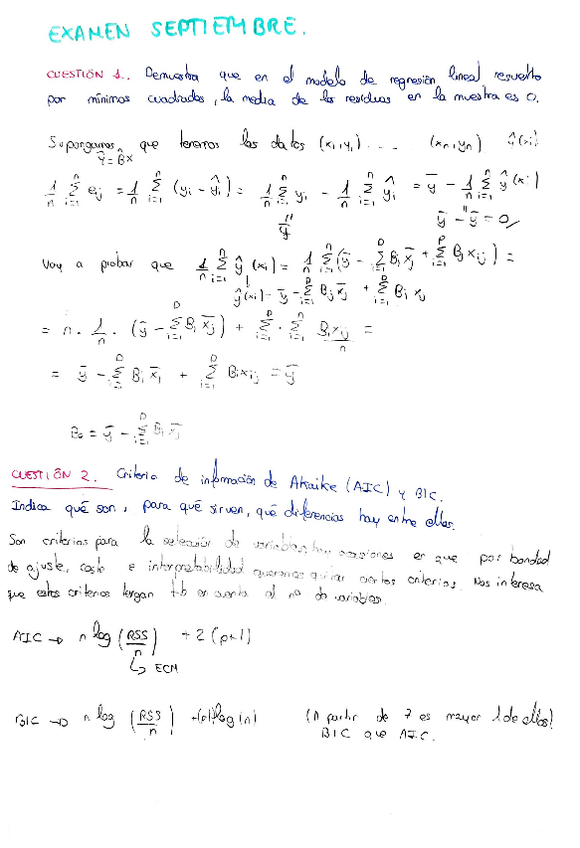 EXAMEN SEPTIEMBRE.
CUESTIÓN 1.. Demuestra que en el modelo de regresión lineal resuelto
por mínimos cuadrados, la media de los residuos en la muestra es 0.
Supongamos que tenemos los datos (x₁,y₁) .... (xₙ,yₙ) ŷ(xi)
Ŷ = B̂x
1/n Σ_{i=1}^n ej = 1/n Σ_{i=1}^n (yi - ŷi) = 1/n Σ_{i=1}^n yi - 1/n Σ_{i=1}^n ŷi = ȳ - 1/n Σ_{i=1}^n ŷ(xi)
ȳ ȳ - ȳ = 0
Voy a probar que 1/n Σ_{i=1}^n ŷ(xi) = 1/n Σ_{i=1}^n (ȳ - Σ_{i=1}^p Bj x̄j + Σ_{i=1}^p Bj xij) =
ŷ(xi) = ȳ - Σ Bj x̄j + Σ_{i=1} Bi xij
= n · 1/n · (ȳ - Σ_{i=1}^p Bi x̄j) + Σ · Σ Bi xij/n =
= ȳ - Σ Bi x̄i + Σ_{i=1}^p Bi xij = ȳ
B₀ = ȳ - Σ Bi x̄j
CUESTIÓN 2. Criterio de información de Akaike (AIC) y BIC.
Indica qué son, para qué sirven, qué diferencias hay entre ellos.
Son criterios para la selección de variables, hay ocasiones en que por bondad
de ajuste, coste e interpretabilidad queremos quitar ciertos criterios. Nos interesa
que estos criterios tengan tb en cuenta el nº de variables.
AIC → n log (RSS/n) + 2 (p+1)
↳ ECM
BIC → n log (RSS/n) + (p) log(n) (A partir de 7 es mayor 1 de ellos)
BIC que AIC.